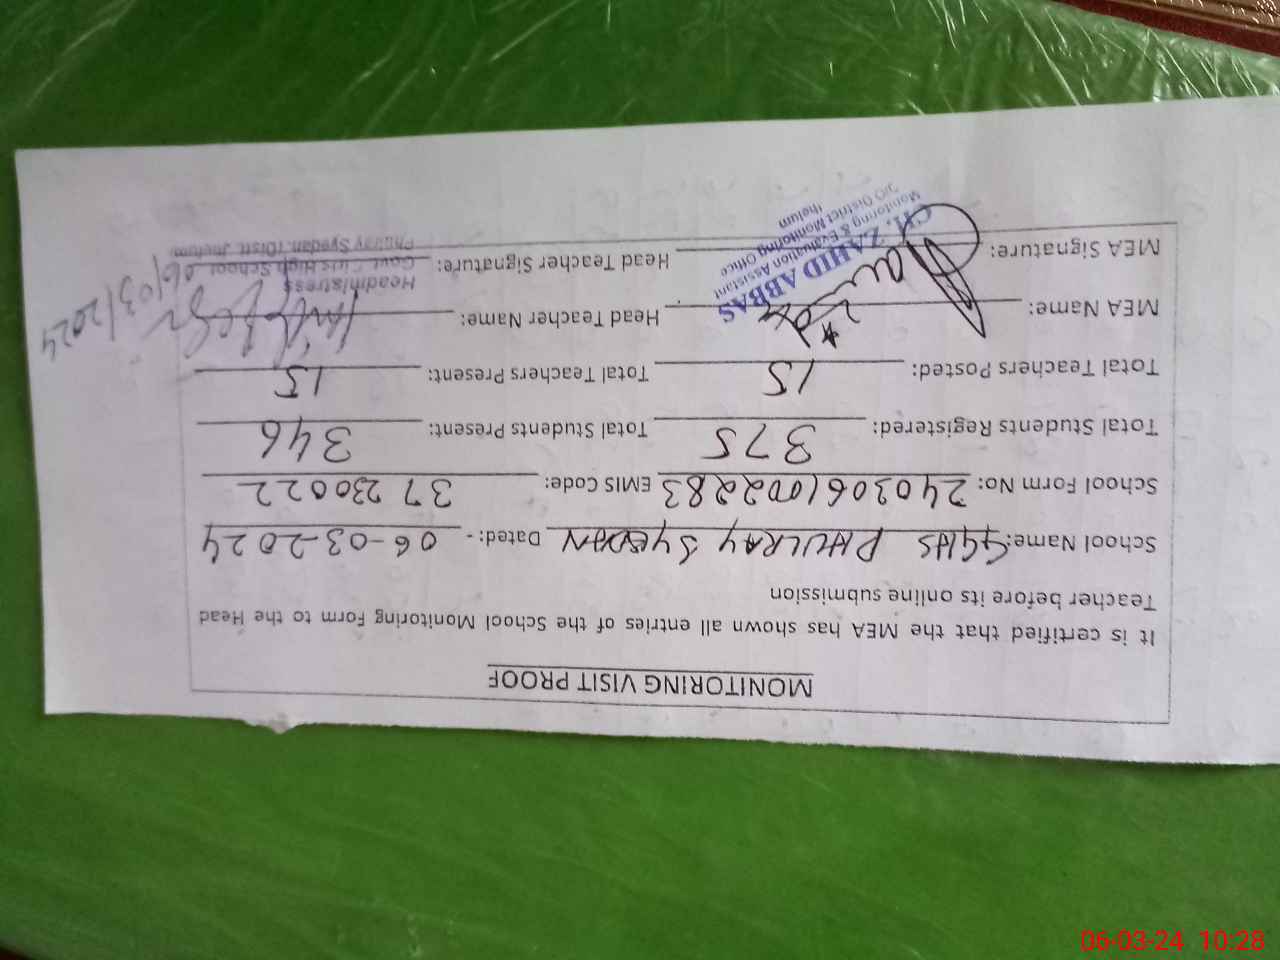 MONITORING VISIT PROOF
It is certified that the MEA has shown all entries of the School Monitoring Form to the Head
Teacher before its online submission
School Name: GGHS PHULRAY SYEDAN Dated:- 06-03-2024
School Form No: 2403061002283 EMIS Code: 37230022
Total Students Registered: 375 Total Students Present: 346
Total Teachers Posted: 15 Total Teachers Present: 15
MEA Name: Head Teacher Name:
MEA Signature: Head Teacher Signature:
CH. ZAHID ABBAS
Monitoring & Evaluation Assistant
O/O District Monitoring Office
Jhelum
Headmistress
Govt. Girls High School
Phulray Syedan (Distt. Jhelum
06/03/2024
06-03-24 10:28